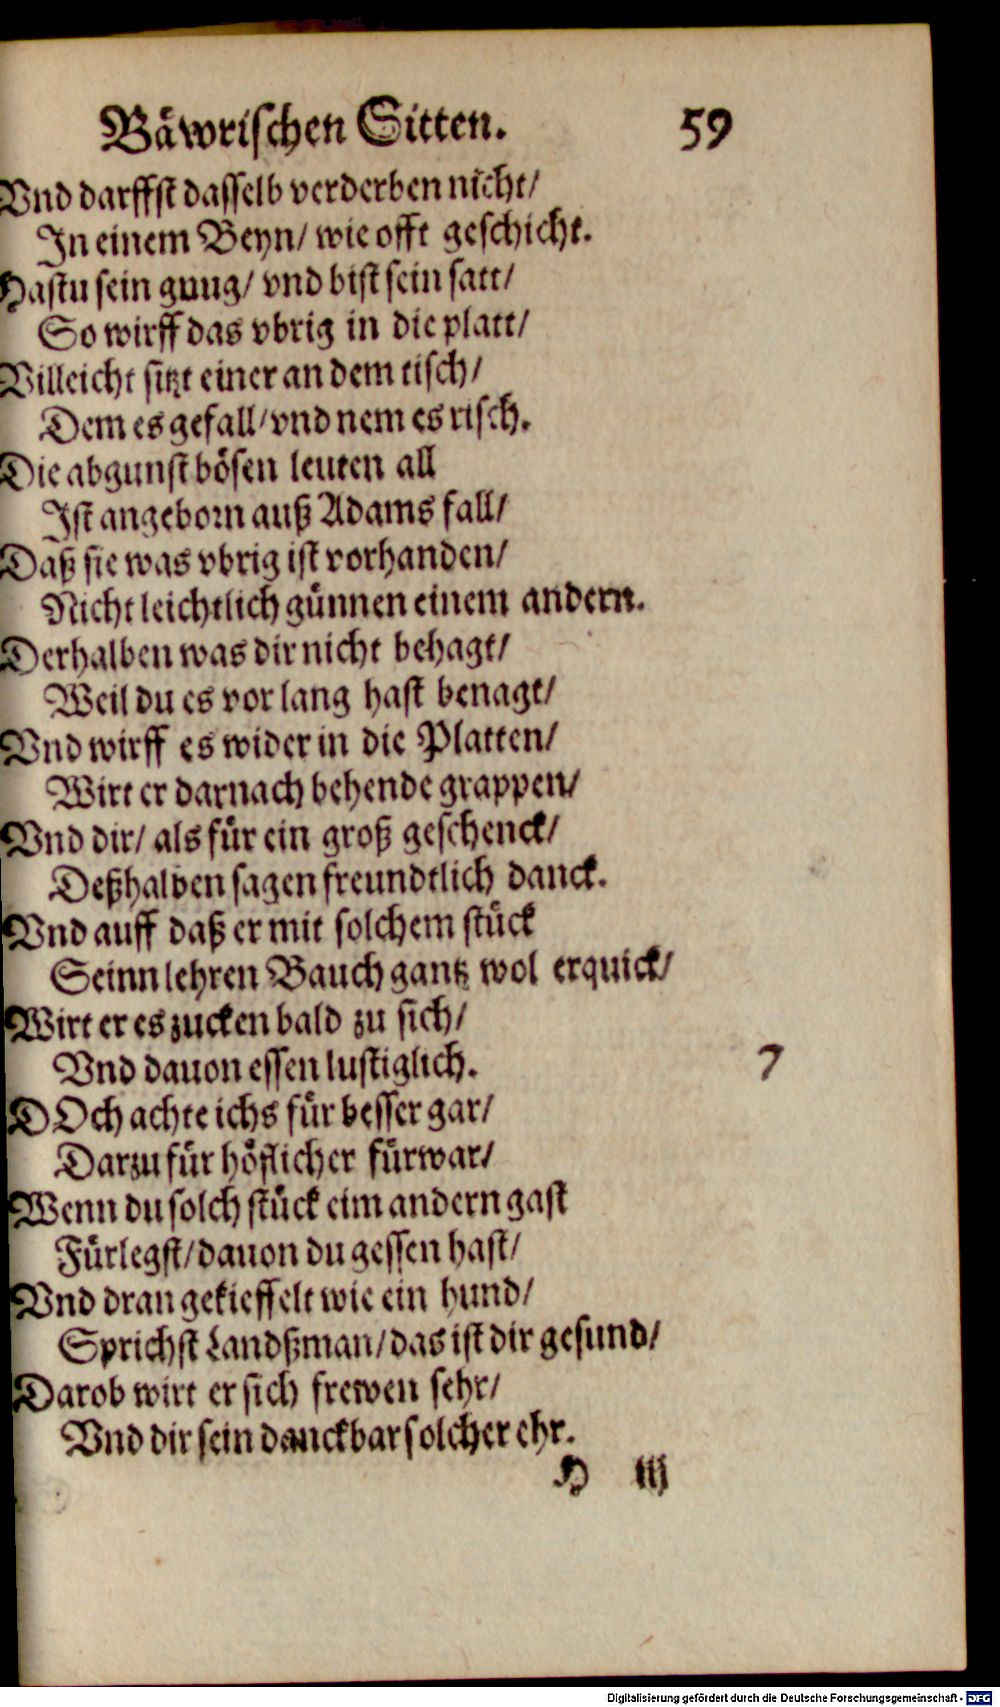 Bäwrischen Sitten. 59
Vnd darffst dasselb verderben nicht/
In einem Beyn/ wie offt geschicht.
Hastu sein gnug/ vnd bist sein satt/
So wirff das vbrig in die platt/
Villeicht sitzt einer an dem tisch/
Dem es gefall/ vnd nem es risch.
Die abgunst bösen leuten all
Ist angeborn auß Adams fall/
Daß sie was vbrig ist vorhanden/
Nicht leichtlich günnen einem andern.
Derhalben was dir nicht behagt/
Weil du es vor lang hast benagt/
Vnd wirff es wider in die Platten/
Wirt er darnach behende grappen/
Vnd dir/ als für ein groß geschenck/
Deßhalben sagen freundtlich danck.
Vnd auff daß er mit solchem stück
Seinn lehren Bauch gantz wol erquick/
Wirt er es zucken bald zu sich/
Vnd dauon essen lustiglich.
7
DOch achte ichs für besser gar/
Darzu für höflicher fürwar/
Wenn du solch stück eim andern gast
Fürlegst/ dauon du gessen hast/
Vnd dran gekieffelt wie ein hund/
Sprichst Landßman/ das ist dir gesund/
Darob wirt er sich frewen sehr/
Vnd dir sein danckbar solcher ehr.
H iij
Digitalisierung gefördert durch die Deutsche Forschungsgemeinschaft - DFG